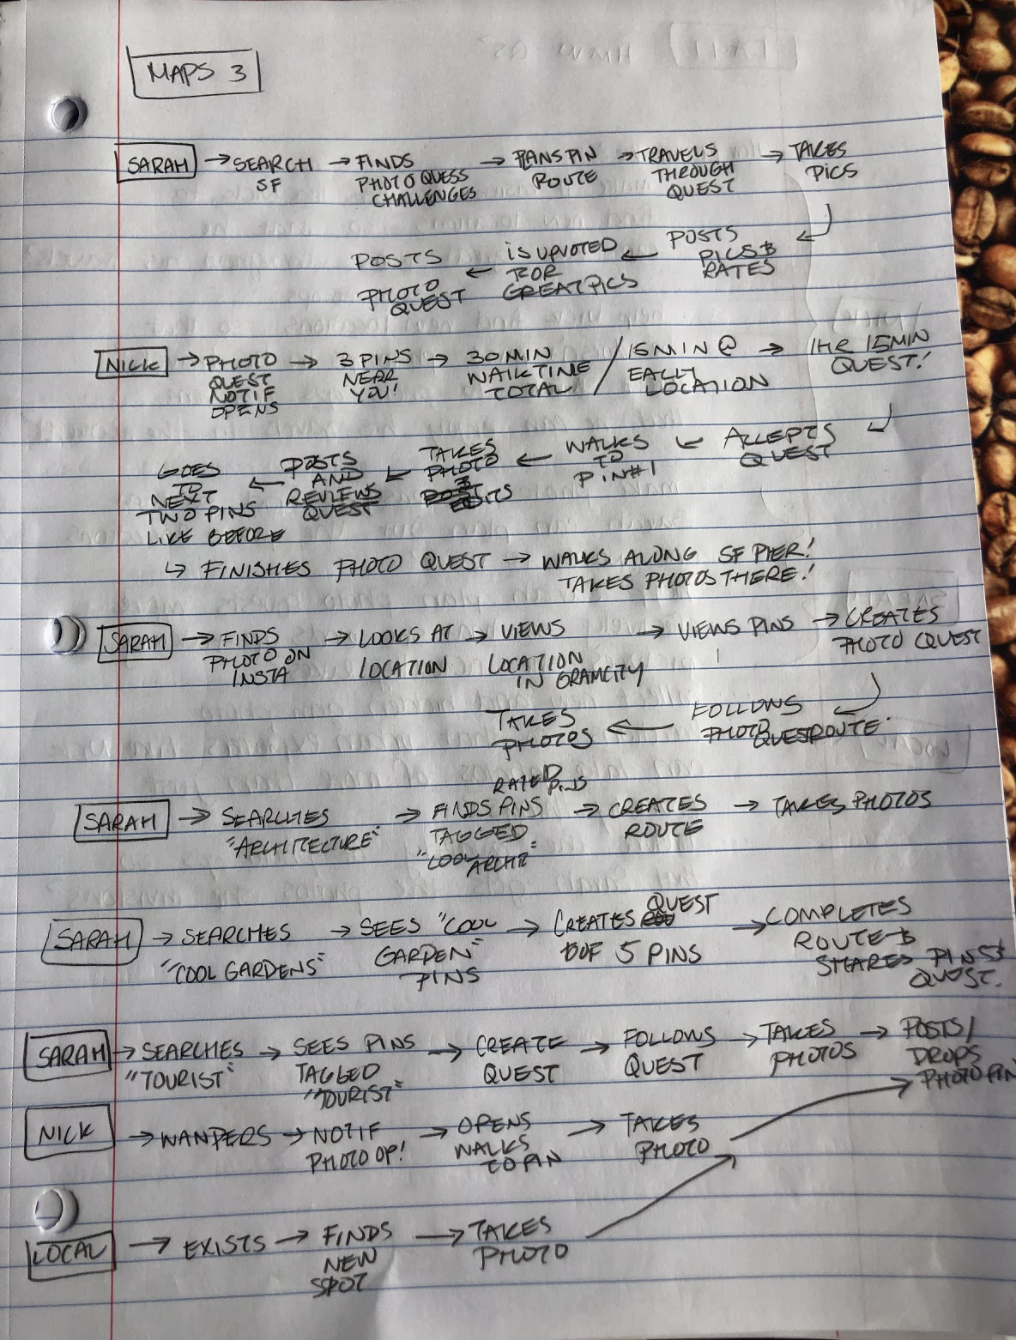 MAPS 3
SARAH → SEARCH SF → FINDS PHOTO QUESS CHALLENGES → PLANS PIN ROUTE → TRAVELS THROUGH QUEST → TAKES PICS
POSTS PICS & RATES ← IS UPVOTED FOR GREAT PICS ← POSTS PHOTO QUEST
NICK → PHOTO QUEST NOTIF OPENS → 3 PINS NEAR YOU! → 30 MIN WALKTIME TOTAL / 15 MIN @ EACH LOCATION → 1HR 15MIN QUEST!
ACCEPTS QUEST ← WALKS TO PIN #1 ← TAKES PHOTO & EDITS ← POSTS AND REVIEWS QUEST ← GOES TO NEXT TWO PINS LIKE BEFORE
↳ FINISHES PHOTO QUEST → WALKS ALONG SF PIER! TAKES PHOTOS THERE!
SARAH → FINDS PHOTO ON INSTA → LOOKS AT LOCATION → VIEWS LOCATION IN GRAMCITY → VIEWS PINS → CREATES PHOTO QUEST
FOLLOWS PHOTO QUEST ROUTE. ← TAKES PHOTOS
SARAH → SEARCHES "ARCHITECTURE" → FINDS RATED PINS PINS TAGGED "COOL ARCHIT" → CREATES ROUTE → TAKES PHOTOS
SARAH → SEARCHES "COOL GARDENS" → SEES "COOL GARDEN" PINS → CREATES QUEST OF 5 PINS → COMPLETES ROUTE & SHARES PINS & QUEST.
SARAH → SEARCHES "TOURIST" → SEES PINS TAGGED "TOURIST" → CREATE QUEST → FOLLOWS QUEST → TAKES PHOTOS → POSTS/ DROPS PHOTO PIN
NICK → WANDERS → NOTIF PHOTO OP! → OPENS WALKS TO PIN → TAKES PHOTO
LOCAL → EXISTS → FINDS NEW SPOT → TAKES PHOTO